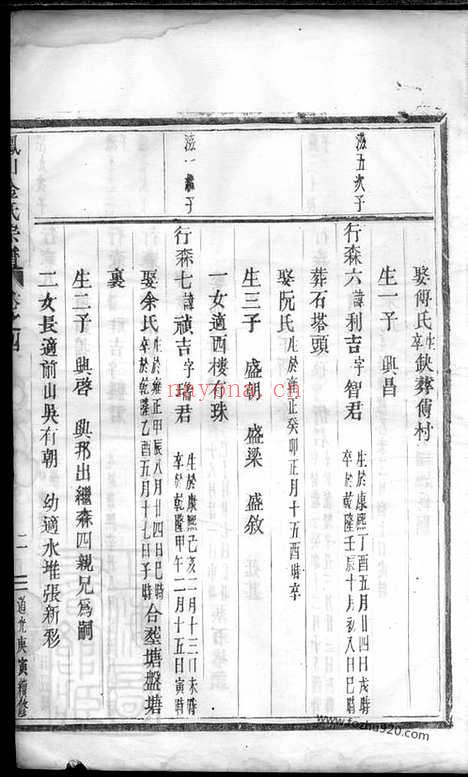 娶傅氏生卒缺葬傅村
生一子 興昌
滋五次子
行森六諱利吉字智君 生於康熙丁酉五月廿四日戌時 卒於乾隆壬辰十月初八日巳時
葬石塔頭
娶阮氏生於雍正癸卯正月十五酉時卒
生三子 盛朝 盛梁 盛敘
一女適西樓有珠
滋一 子
行森七諱禎吉字瑞君 生於康熙己亥二月十三日未時 卒於乾隆甲午二月十五日寅時
娶余氏生於雍正甲辰八月廿四日巳時 卒於乾隆乙酉五月十七日子時 合塟塘盤塘
裏
生二子 興啓 興邦出繼森四親兄爲嗣
二女長適前山吳有朝 幼適水堆張新彩
鳳山 氏宗譜 卷之四 二 道光庚寅續修
nayona.cn
www.fozhu920.com